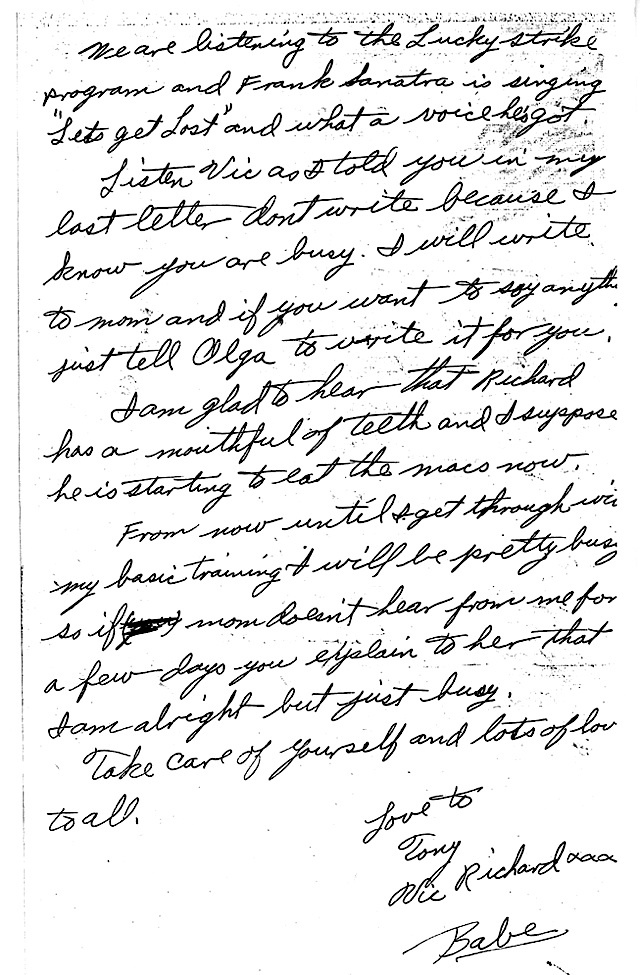 We are listening to the Lucky strike
program and Frank Sanatra is singing
"Lets get Lost" and what a voice he's got.
Listen Vic as I told you in my
last letter dont write because I
know you are busy. I will write
to mom and if you want to say anyth
just tell Olga to write it for you.
I am glad to hear that Richard
has a mouthful of teeth and I suppose
he is starting to eat the macs now.
From now until I get through wi
my basic training I will be pretty busy
so if mom doesn't hear from me for
a few days you explain to her that
I am alright but just busy.
Take care of yourself and lots of lov
to all.
Love to
Tony
Vic Richard xxx
Babe